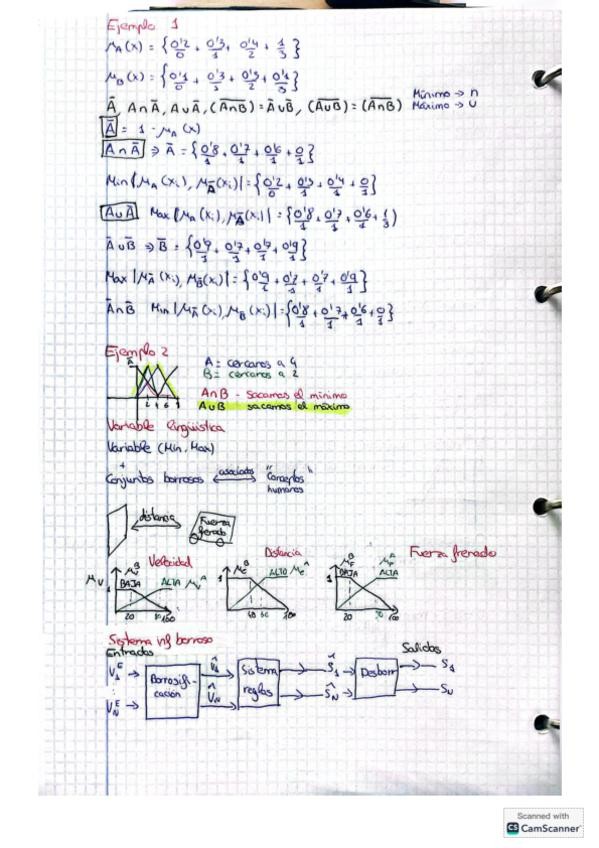 Ejemplo 1
μA(x) = {0'2/0 + 0'3/1 + 0'4/2 + 1/3}
μB(x) = {0'1/0 + 0'3/1 + 0'3/2 + 0'1/3}
Ā, A∩Ā, A∪Ā, (A̅∩̅B̅) = Ā∪B̄, (A̅∪̅B̅) = (A̅∩̅B̅) Mínimo → ∩
Máximo → ∪
Ā = 1 - μA(x)
A∩Ā ⇒ Ā = {0'8/1 + 0'7/1 + 0'6/1 + 0/1}
Min|μA(xi), μĀ(xi)| = {0'2/0 + 0'3/1 + 0'4/1 + 0/1}
A∪Ā Max|μA(xi), μĀ(xi)| = {0'8/1, 0'7/1, 0'6/1, 1/3}
Ā∪B̄ ⇒ B̄ = {0'9/1 + 0'7/1 + 0'7/1 + 0'9/1}
Max|μĀ(xi), μB̄(xi)| = {0'9/1 + 0'7/1 + 0'7/1 + 0'9/1}
Ā∩B̄ Min|μĀ(xi), μB̄(xi)| = {0'8/1 + 0'7/1 + 0'6/1 + 0/1}
Ejemplo 2
A = cercanos a 4
B = cercanos a 2
2 4 6
A∩B - sacamos el mínimo
A∪B sacamos el máximo
Variable lingüística
Variable (Min, Max)
+
Conjuntos borrosos asociados "Conceptos humanos"
distancia
Fuerza frenado
Velocidad
Distancia
Fuerza frenado
μV 1 BAJA μV^B ALTA μV^A
20 80 100
1 μC^B ALTO μC^A
40 60 100
1 BAJA μF^B ALTA μF^A
20 100
Sistema inf borroso
Entradas
Salidas
V1^E → Borrosificación V̂1 → Sistema reglas → Ŝ1 → Desborr → S1
VN^E → V̂N → ŜN → SN
Scanned with
CS CamScanner